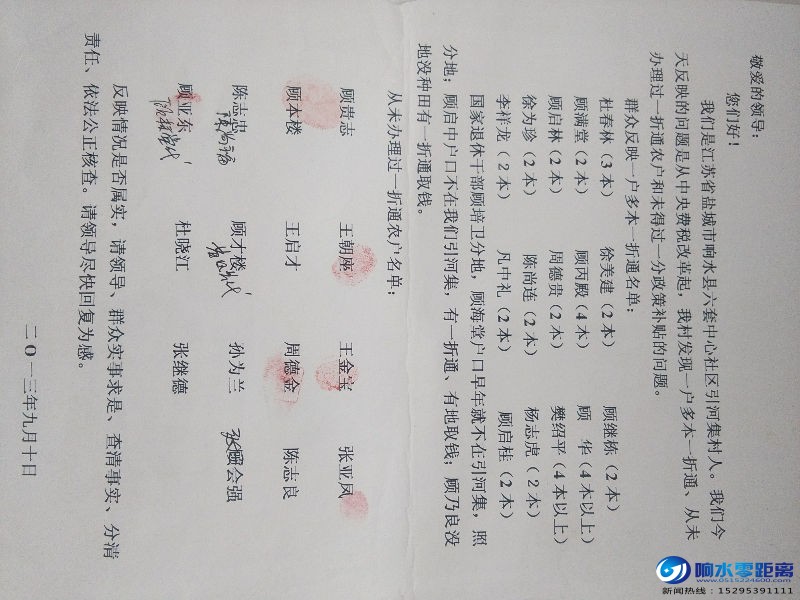 敬爱的领导：
您们好！
我们是江苏省盐城市响水县六套中心社区引河集村人。我们今
天反映的问题是从中央费税改革起，我村发现一户多本一折通、从未
办理过一折通农户和未得过一分政策补贴的问题。
群众反映一户多本一折通名单：
杜春林（3本） 徐美建（2本） 顾继栋（2本）
顾满堂（2本） 顾丙殿（4本） 顾 华（4本以上）
顾启林（2本） 周德贵（2本） 樊绍平（4本以上）
徐为珍（2本） 陈尚连（2本） 杨志虎（2本）
李祥龙（2本） 凡中礼（2本） 顾启柱（2本）
国家退休干部顾培卫分地，顾海堂户口早年就不在引河集，照
分地；顾启中户口不在我们引河集，有一折通、有地取钱；顾乃良没
地没种田有一折通取钱。
从未办理过一折通农户名单：
顾贵志 王朝座 王金宝 张亚凤
顾本楼 王启才 周德金 陈志良
陈志忠 顾才楼 孙为兰 会强
顾亚东 杜晓江 张继德
反映情况是否属实，请领导、群众实事求是、查清事实、分清
责任、依法公正核查。请领导尽快回复为感。
二O一三年九月十日
响水零距离
www.0515224600.com
新闻热线：15295391111